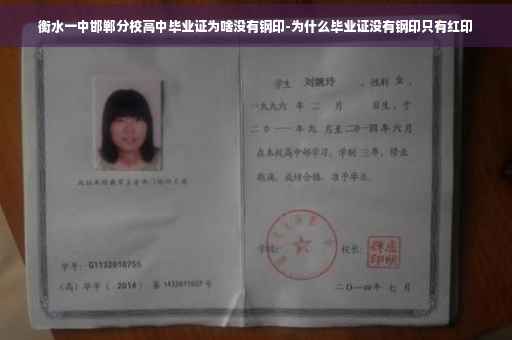 衡水一中邯郸分校高中毕业证为啥没有钢印-为什么毕业证没有钢印只有红印
学生 刘婉玲 ，性别 女 ，
一九九六 年 二 月 日生，于
二〇一一 年 九 月至 二〇一四 年 六 月
在本校高中部学习，学制 三 年，修业
期满，成绩合格，准予毕业。
学校： 校长：
学号： G1132010755
（高）毕字（ 2014 ）第 1432011027 号
二〇一四年 七 月